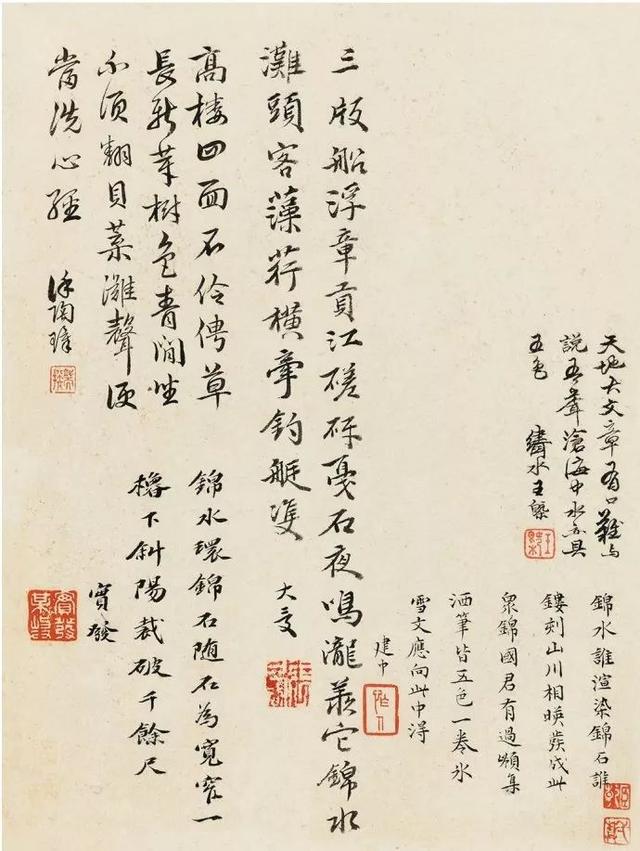 天地大文章有口難與
說吾滄海中水亦具
五色 繡水王槩
錦水誰渲染錦石誰
鏤刻山川相暎發成此
眾錦國君有過頻集
洒筆皆五色一卷氷
雪文應向此中得
建中
三版船浮章貢江戛石夜鳴瀧羨它錦水
灘頭客藻荇橫牽釣艇雙
大受
高樓四面石伶俜草
長新芽樹色青閒坐
不須翻貝葉灘聲便
當洗心經 徐陶璋
錦水環錦石隨石為寬窄一
櫓下斜陽裁破千餘尺
寶發